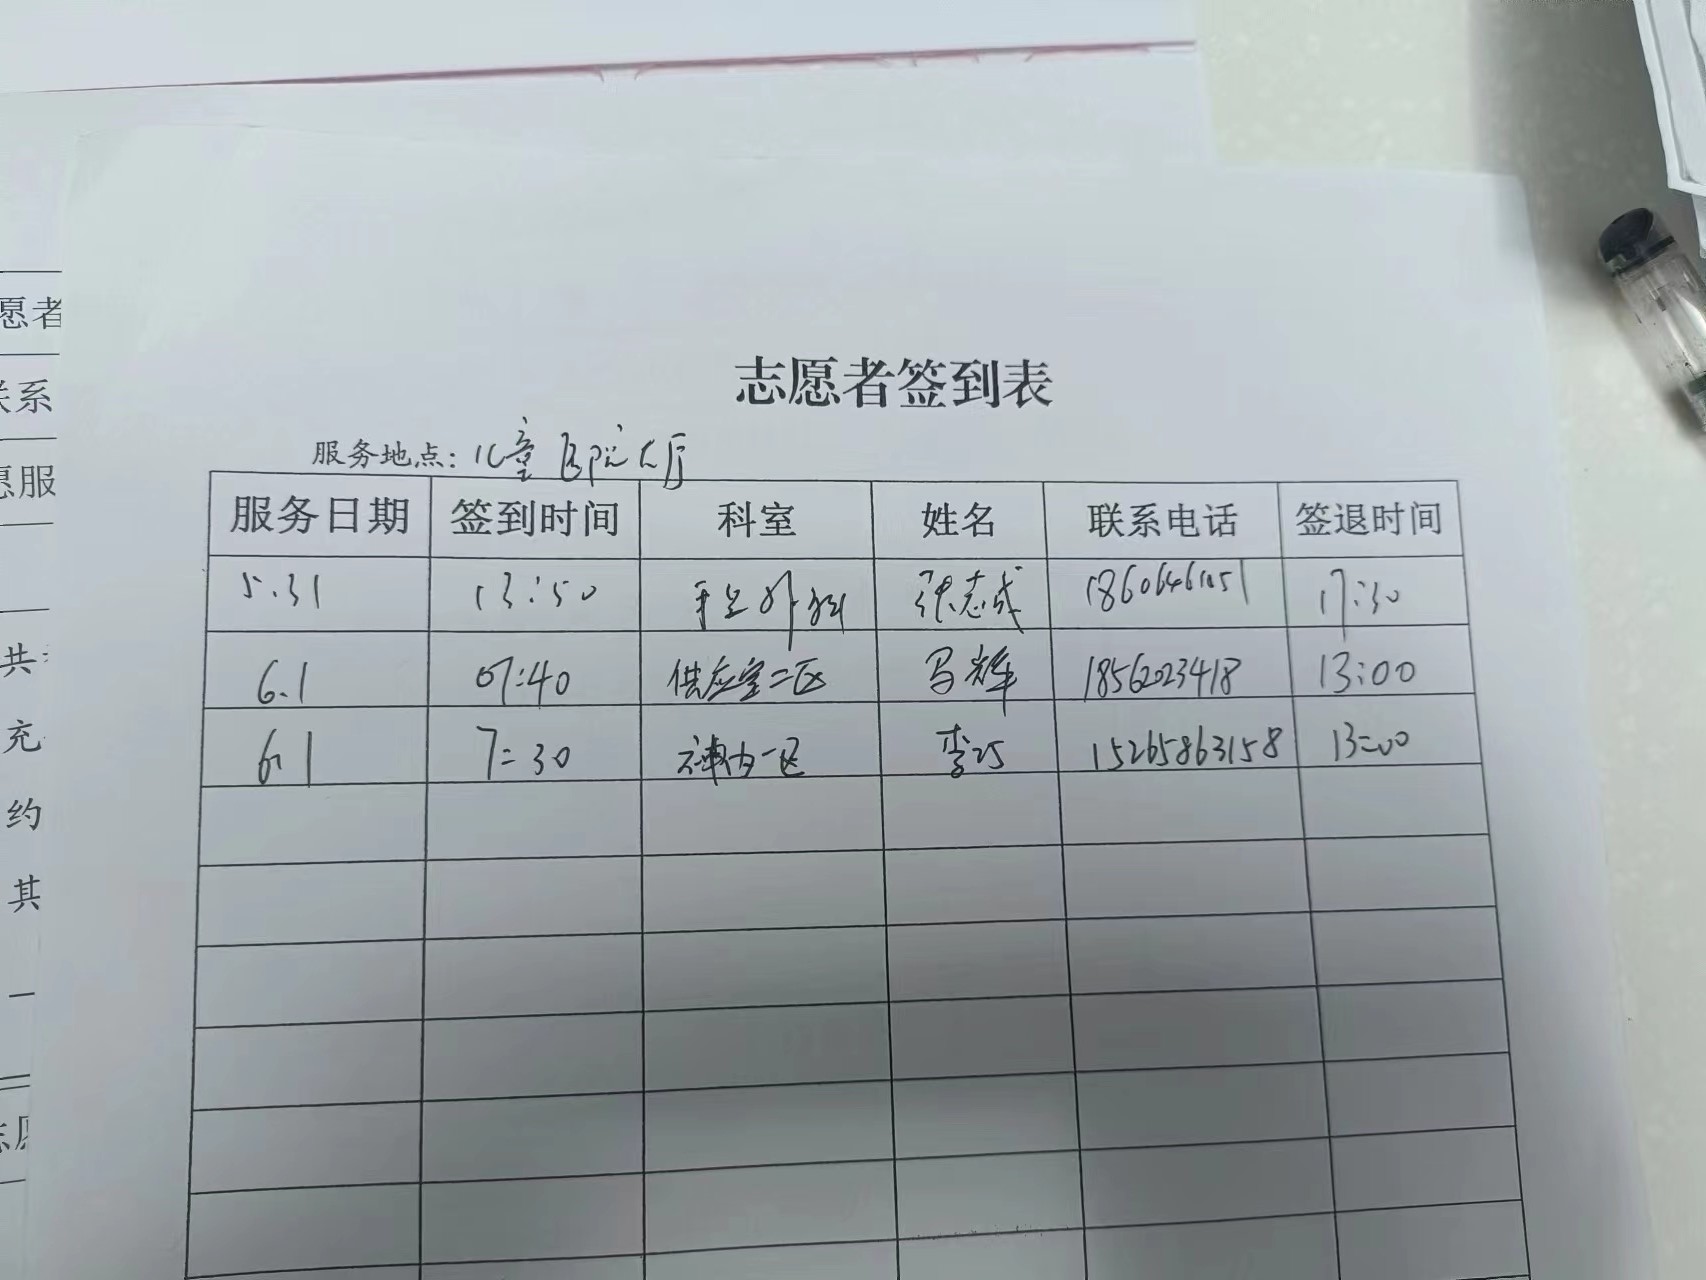 志愿者签到表
服务地点：儿童医院大厅
服务日期 签到时间 科室 姓名 联系电话 签退时间
5.31 13:50 手足外科 张志成 17:30
6.1 07:40 供应室二区 马辉 1856023418 13:00
6.1 7:30 神内一区 李巧 15265863158 13:00
愿者
联系
愿服
共
充
约
其
志愿